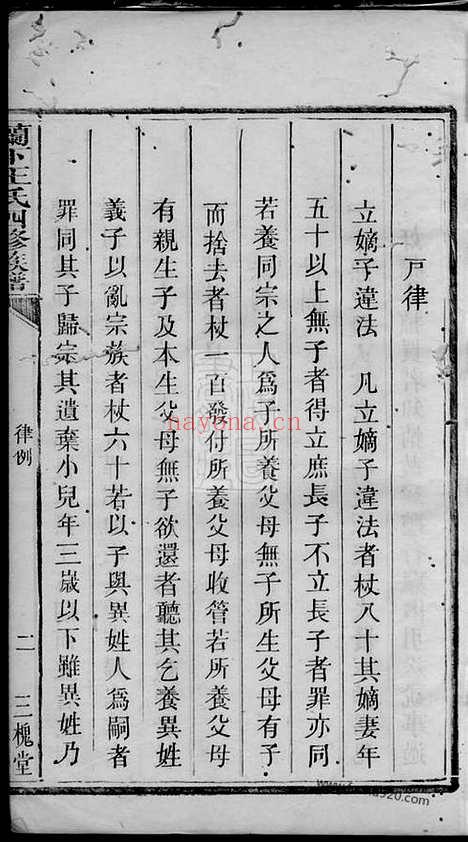 戸律
立嫡子違法 凡立嫡子違法者杖八十其嫡妻年
五十以上無子者得立庶長子不立長子者罪亦同
若養同宗之人爲子所養父母無子所生父母有子
而捨去者杖一百發付所養父母收管若所養父母
有親生子及本生父母無子欲還者聽其乞養異姓
義子以亂宗族者杖六十若以子與異姓人爲嗣者
罪同其子歸宗其遺棄小兒年三歲以下雖異姓乃
王氏四修族譜
律例
二
三槐堂
nayona.cn